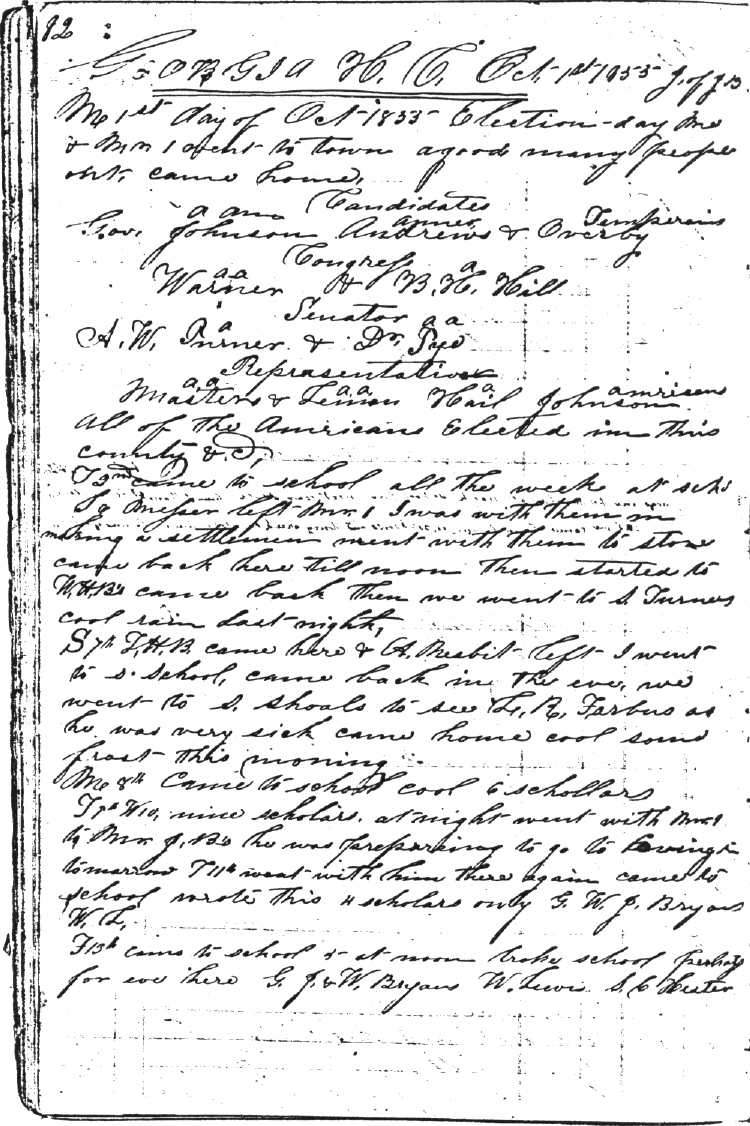 92 :
GEORGIA H. C. Oct 1st 1855 J. of J B
Mo 1st day of Oct 1855 Election day Me
& Mr 1 went to town a good many people
out, came home,
Candidates
a am anner Temperans
Gov. Johnson Andrews & Overby
Congress
a a a
Warner & B. H. Hill
Senator
a a a
A. W. Turner & Dr. Pye
Representative
a a a a a amrisens
Masters & Lemon Hail Johnson
All of the Americans Elected in this
county & C,
T 2nd came to school all the week at sch
S 6 Messer left Mr 1 I was with them in
making a settlemen went with them to stoe
came back here till noon then started to
W.H.B's came back then we went to S. Turners
cool rain last night,
S 7th T. H. B. came here & A. Nesbit left I went
to S. School, came back in the eve, we
went to S. Shoals to see L. R. Farbus as
he was very sick came home cool some
frost this moning
Mo 8th Came to school cool 6 schollars
T 9th W 10, nine scholars. at night went with Mr 1
to Mr. J. B's he was prepairing to go to Covingt
tomarrow T 11th went with him there again came to
school wrote this 4 scholars only G. W. J. Bryans
W. L.
F 13th came to school & at noon broke school perhaps
for eve here G. J. & W. Bryans W. Lewis S. C Hester